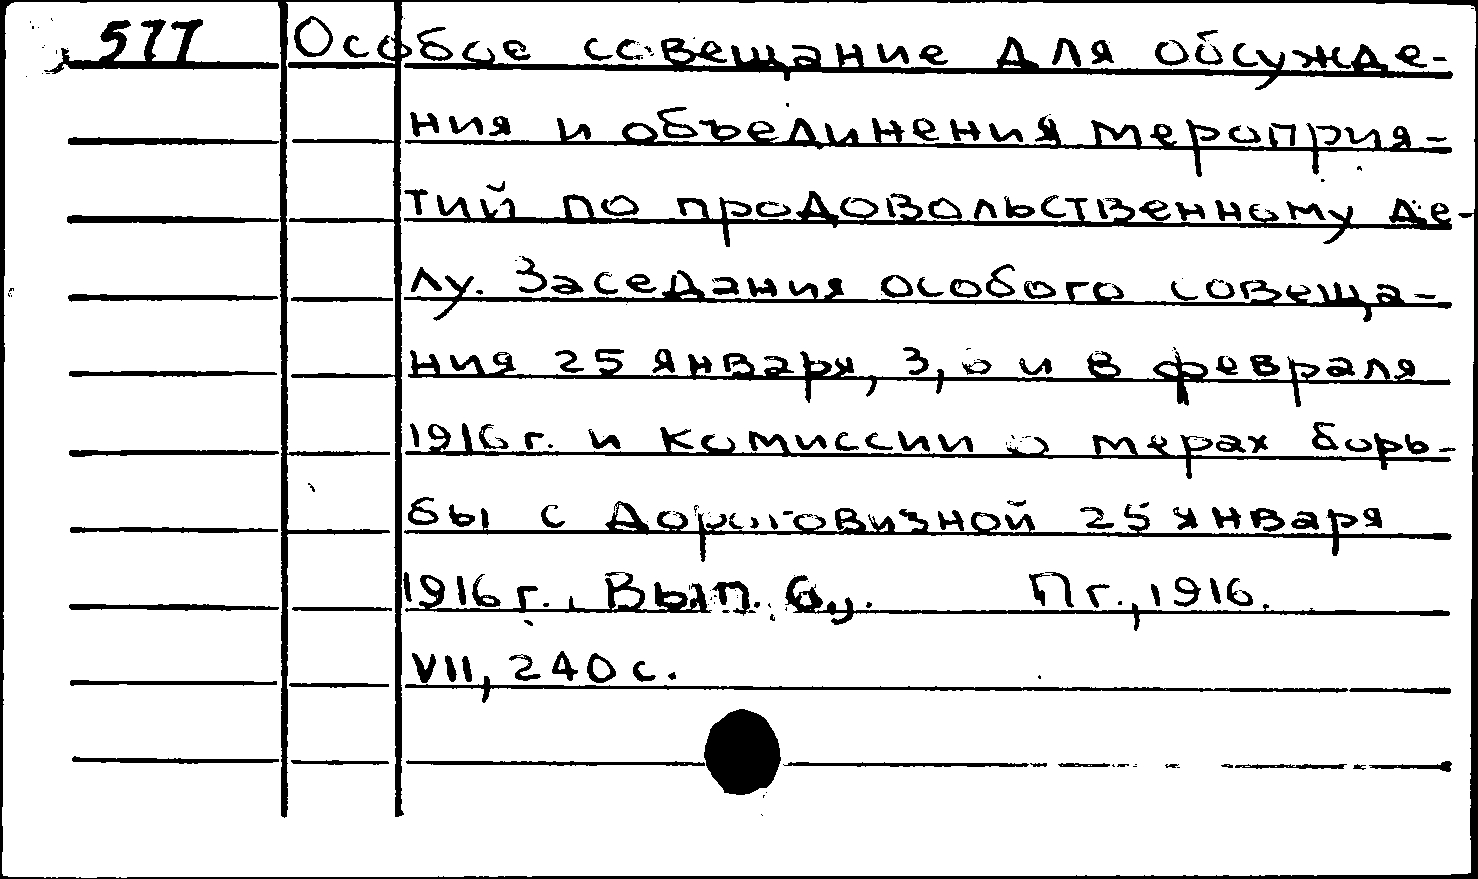 577 Особое совещание для обсужде-
ния и объединения мероприя-
тий по продовольственному де-
лу. Заседания особого совеща-
ния 25 января, 3, и 8 февраля
1916 г. и комиссии о мерах борь-
бы с дороговизной 25 января
1916 г. Вып. 6. Пг., 1916.
VII, 240 с.